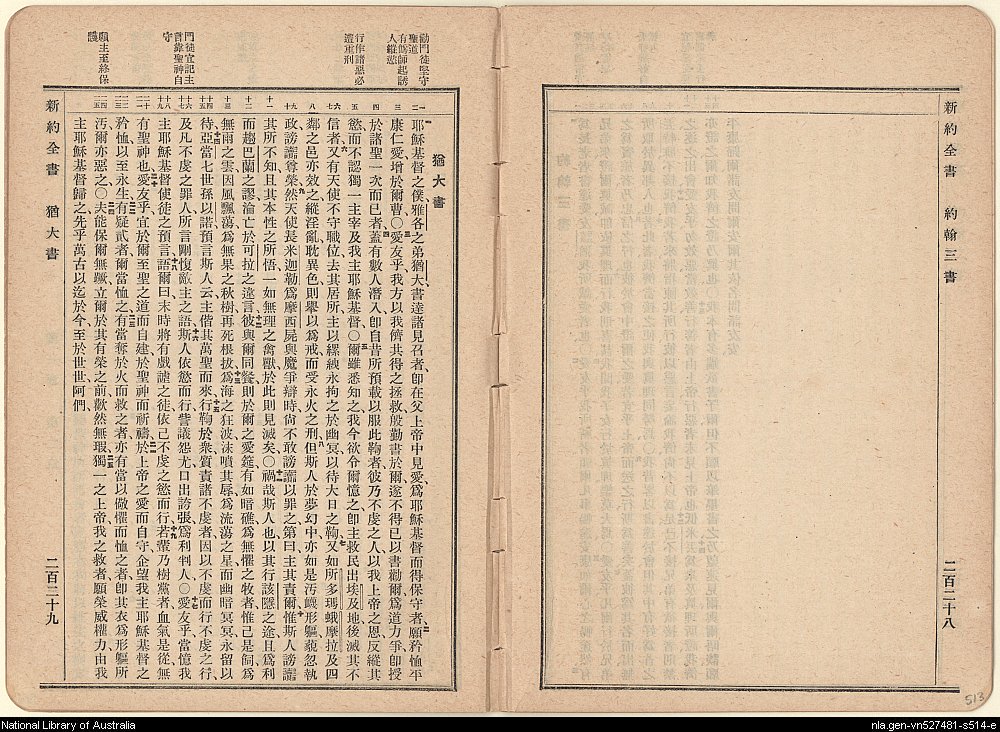 新約全書
約翰三書
二百二十八
勸門徒堅守
聖道
有僞師起誘
人縱慾
行作諸惡必
遭重刑
門徒宜記主
言賴聖神自
守
願主至終保
護
猶大書
耶穌基督之僕雅各之弟猶大書達諸見召者卽在父上帝中見愛爲耶穌基督而得保守者願矜恤平
康仁愛增於爾曹○愛友乎我方以我儕共得之拯救殷勤書於爾遂不得已以書勸爾爲道力爭卽授
於諸聖一次而已者蓋有數人潛入卽自昔所預載以服此鞫者彼乃不虔之人以我上帝之恩反縱其
慾而不認獨一主宰及我主耶穌基督○爾雖悉知之我今欲令爾憶之卽主救民出埃及地後滅其不
信者又有天使不守職位去其居所主以縲絏永拘之於幽冥以待大日之鞫又如所多瑪蛾摩拉及四
鄰之邑亦效之縱淫亂耽異色則舉以爲戒而受永火之刑但斯人於夢幻中亦如是汚衊形軀藐忽執
政謗讟尊榮然天使長米迦勒爲摩西屍與魔爭辯時尚不敢謗讟以罪之第曰主其責爾惟斯人謗讟
其所不知且其本性之所悟一如無理之禽獸於此則見滅矣○禍哉斯人也以其行該隱之途且爲利
而趨巴蘭之謬淪亡於可拉之違言彼與爾同餐則於爾之愛筵有如暗礁爲無懼之牧者惟己是飼爲
無雨之雲因風飄蕩爲無果之秋樹再死根拔爲海之狂波沫噴其辱爲流蕩之星而幽暗冥冥永留以
待亞當七世孫以諾預言斯人云主偕其萬聖而來行鞫於衆質責諸不虔者因以不虔而行不虔之行
及凡不虔之罪人所言剛愎敵主之語斯人依慾而行訾議怨尤口出誇張爲利判人○愛友乎當憶我
主耶穌基督使徒之預言語爾曰末時將有戲謔之徒依己不虔之慾而行若輩乃樹黨者血氣是從無
有聖神也愛友乎宜於爾至聖之道而自建於聖神而祈禱於上帝之愛而自守企望我主耶穌基督之
矜恤以至永生有疑貳者爾當恤之有當奪於火而救之者亦有當以儆懼而恤之者卽其衣爲形軀所
汚爾亦惡之○夫能保爾無蹶立爾於其有榮之前歡然無瑕獨一之上帝我之救者願榮威權力由我
主耶穌基督歸之先乎萬古以迄於今至於世世阿們
新約全書
猶大書
二百二十九
513
National Library of Australia
nla.gen-vn527481-s514-e